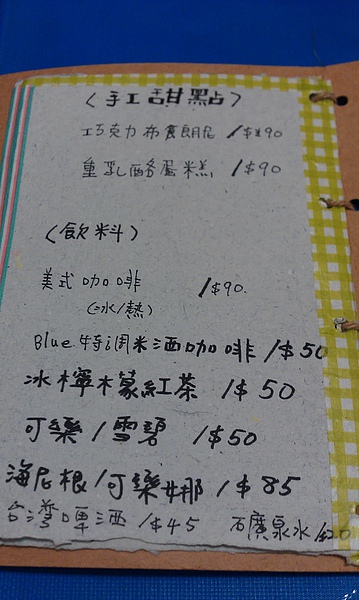 〈手工甜點〉
巧克力布食朗尼 /$90
重乳酪蛋糕 /$90
〈飲料〉
美式咖啡 /$90
(冰/熱)
Blue特調米酒咖啡 /$50
冰檸檬紅茶 /$50
可樂/雪碧 /$50
海尼根/可樂娜 /$85
台灣啤酒 /$45 石廣泉水/$20